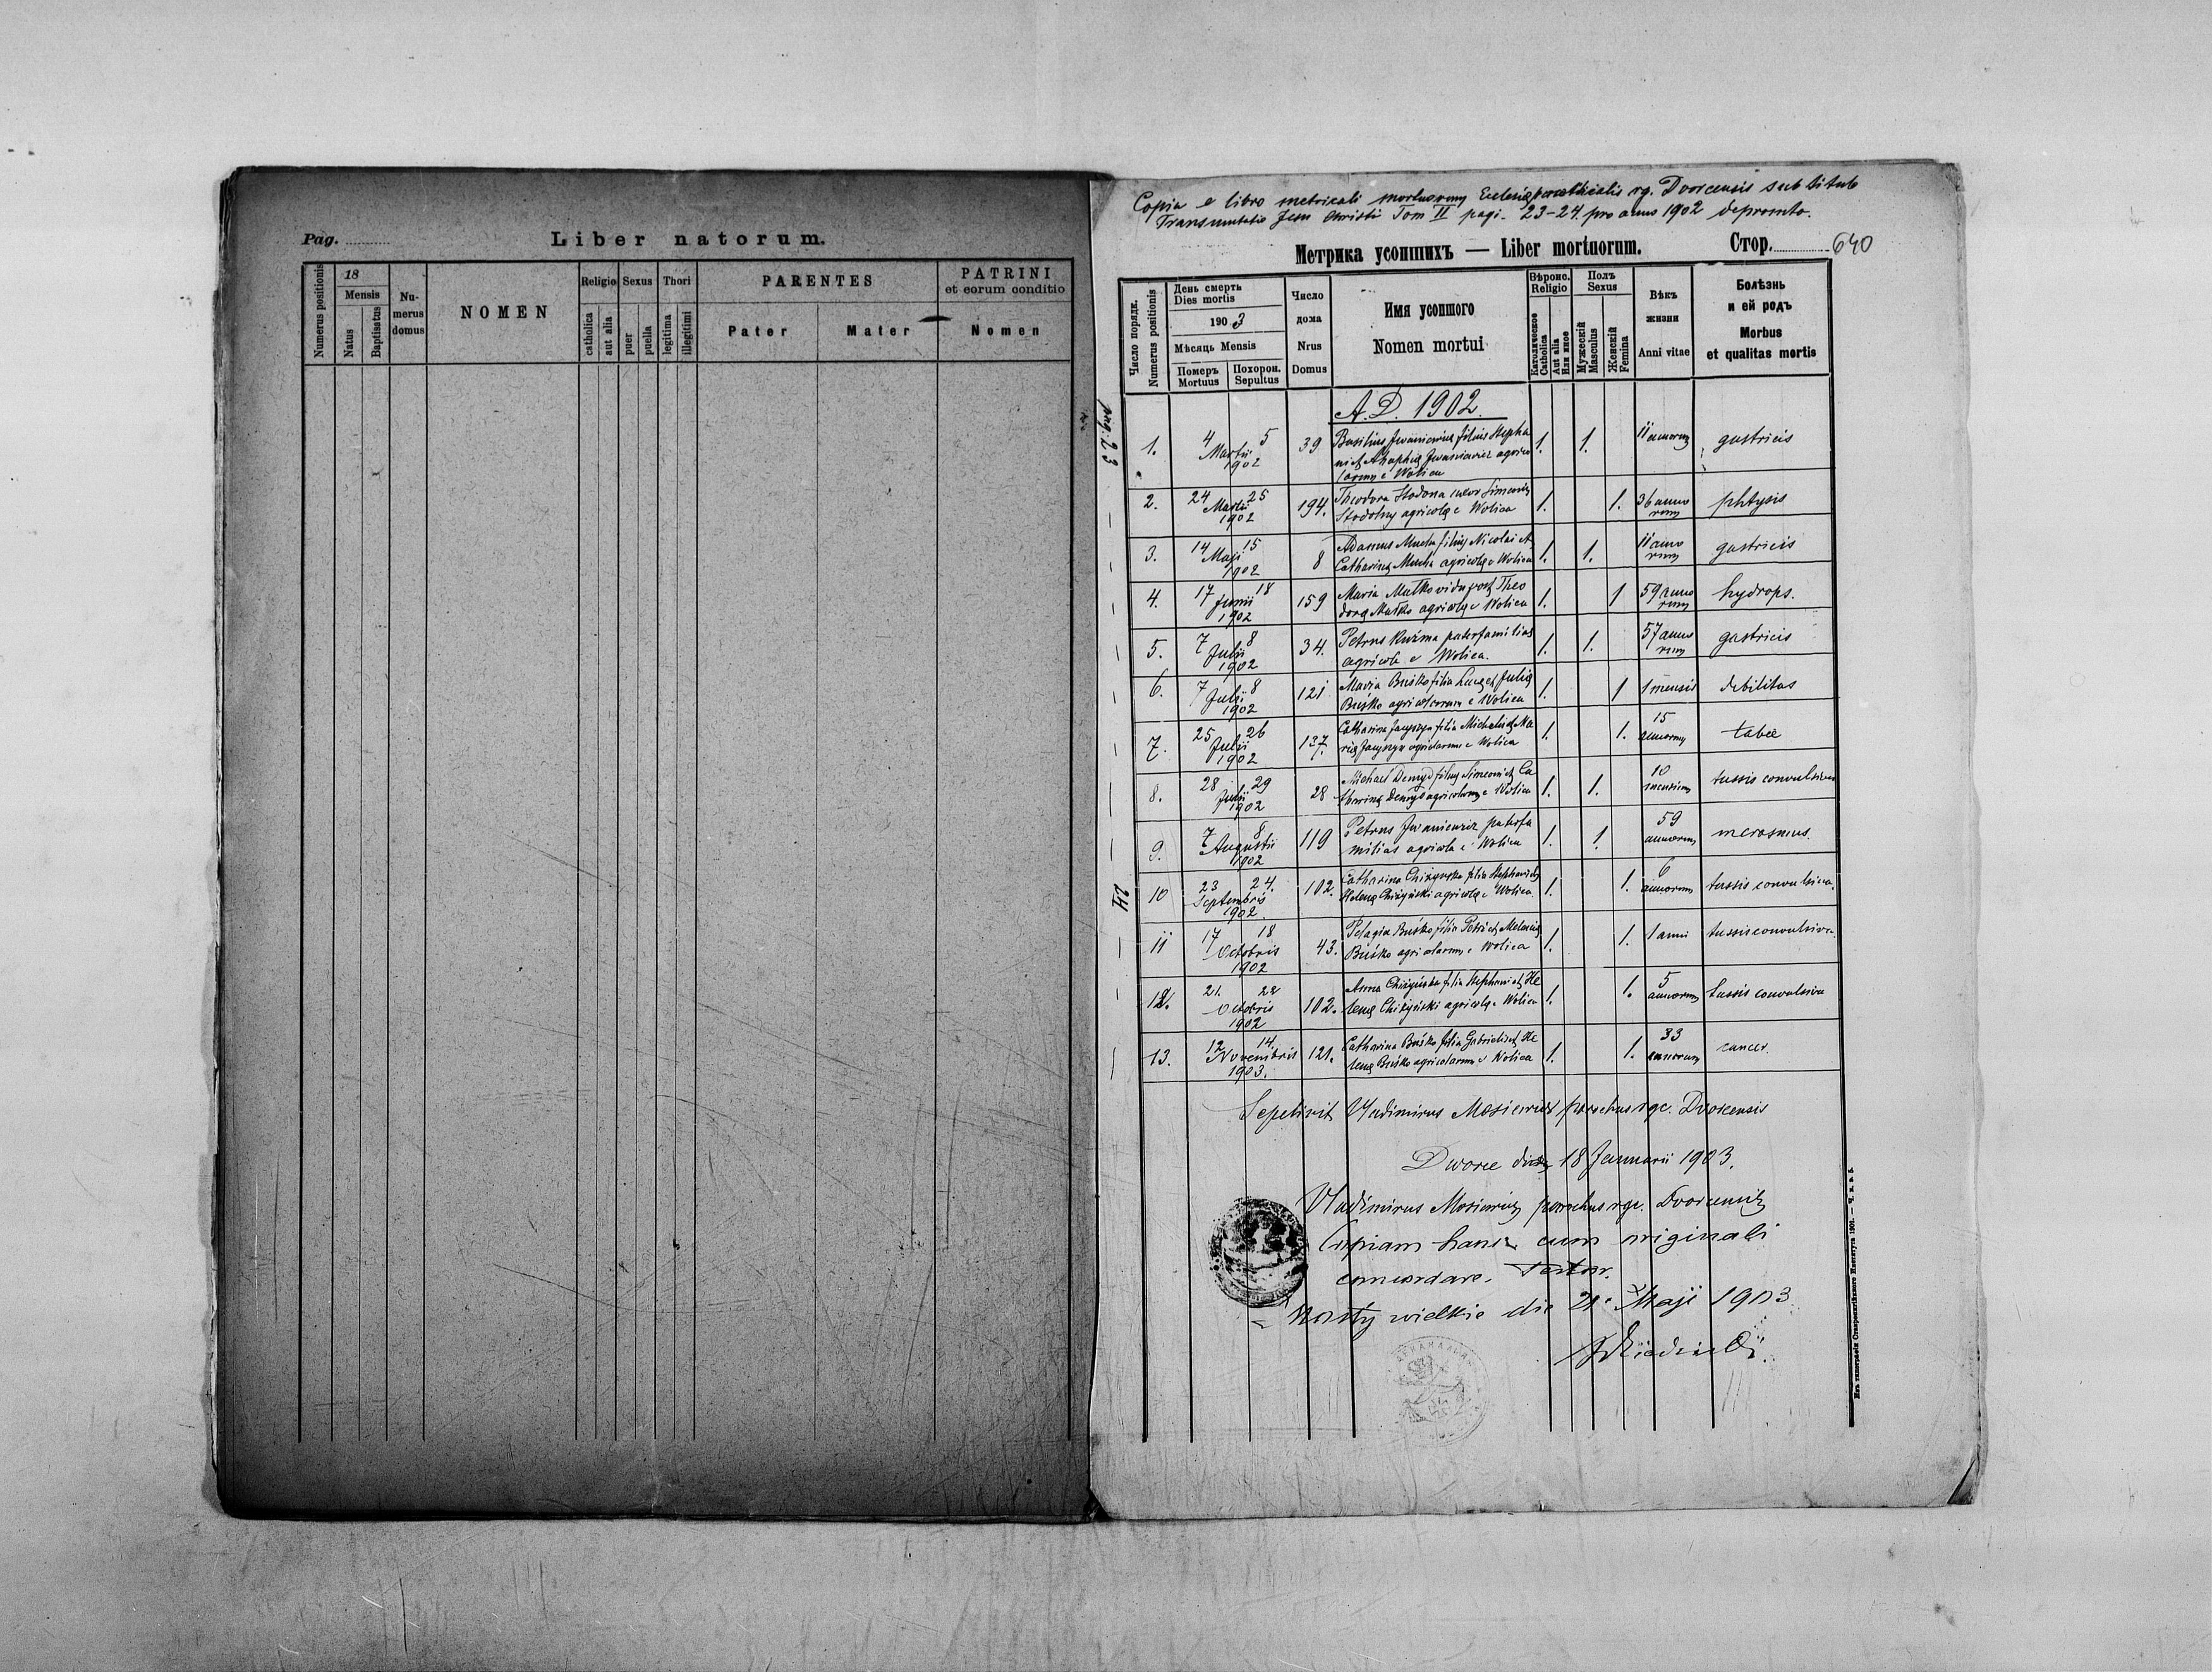 Pag. ............
Liber natorum.
Numerus positionis
18
Mensis
Natus
Baptisatus
Nu-
merus
domus
NOMEN
Religio
catholica
aut alia
Sexus
puer
puella
Thori
legitima
illegitimi
PARENTES
Pater
Mater
PATRINI
et eorum conditio
Nomen
Copia e libro metricali mortuorum Ecclesiæ parochialis rg. Dvorcensis sub titulo
Transmutatio Jesu Christi Tom II pagi. 23-24. pro anno 1902 depromta.
Метрика усопшихъ — Liber mortuorum.
Стор. ............ 640
Число порядк.
Numerus positionis
День смерть
Dies mortis
190 3
Мѣсяць Mensis
Померъ
Mortuus
Похорон.
Sepultus
Число
дома
Nrus
Domus
Имя усопшого
Nomen mortui
Вѣроис.
Religio
Католическое
Catholica
Aut alia
Или иное
Полъ
Sexus
Мужескій
Masculus
Женскій
Femina
Вѣкъ
жизни
Anni vitae
Болѣзнь
и ей родъ
Morbus
et qualitas mortis
A. D. 1902.
pag. 23
1. 4 5 Martii 1902 39 Basilius Iwaniewicz filius Stepha
ni et Iwaniewicz agrico
larum e Wolica 1. 1. 11 annorum gastricis
2. 24 25 Martii 1902 194. Theodora uxor Simeonis
Stodolny agricolæ e Wolica 1. 1. 36 anno
rum phtysis
3. 14 15 Maji 1902 8 Adamus Mucha filius Nicolai et
Catharinæ Mucha agricolæ e Wolica 1. 1. 11 anno
rum gastricis
4. 17 18 Junii 1902 159 Maria Matko vidua post Theo
doro Matko agricolæ e Wolica 1. 1 59 anno
rum hydrops.
5. 7 8 Julii 1902 34. Petrus Kuźma paterfamilias
agricola e Wolica. 1. 1. 57 anno
rum gastricis
6. 7 8 Julii 1902 121 Maria Buśko filia Lucæ et Juliæ
Buśko agricolarum e Wolica 1. 1 1 mensis debilitas
7. 25 26 Julii 1902 137. Catharina filia Michaelis et Ma
riæ agricolarum e Wolica 1. 1. 15
annorum tabea
8. 28 29 Julii 1902 28 Michael Demyd filius Simeonis et Ca
tharinæ Demyd agricolarum e Wolica 1. 1. 10
mensium tussis convulsiva
9. 7 8 Augustii 1902 119 Petrus Iwaniewicz paterfa
milias agricola e Wolica 1. 1. 59
annorum
24
10 23 24. Septembris 1902. 102. Catharina Chiżyńska filia Stephani et
Helenæ Chiżyński agricolæ e Wolica. 1. 1. 6
annorum tussis convulsiva.
11 17 18 Octobris 1902 43. Pelagia Buśko filia Petri et Melaniæ
Buśko agricolarum e Wolica 1. 1. 1 anni tussis convulsiva.
12. 21. 22 Octobris 1902 102. Anna Chiżyńska filia Stephani et He
lenæ Chiżyński agricolæ e Wolica 1. 1. 5
annorum tussis convulsiva
13. 12 14. Novembris 1903. 121. Catharina Buśko filia Gabrielis et He
lenæ Buśko agricolarum e Wolica 1. 1. 33
annorum cancer.
Sepelivit Vladimirus Mosiewicz parochus rgc. Dvorcensis
Dworce die 18 Januarii 1903.
Vladimirus Mosiewicz parochus rgc. Dvorcensis
Copiam hanc cum originali
concordare. Testor.
Mosty wielkie die 21. Maji 1903
Изъ типографіи Ставропигійского Института 1901.